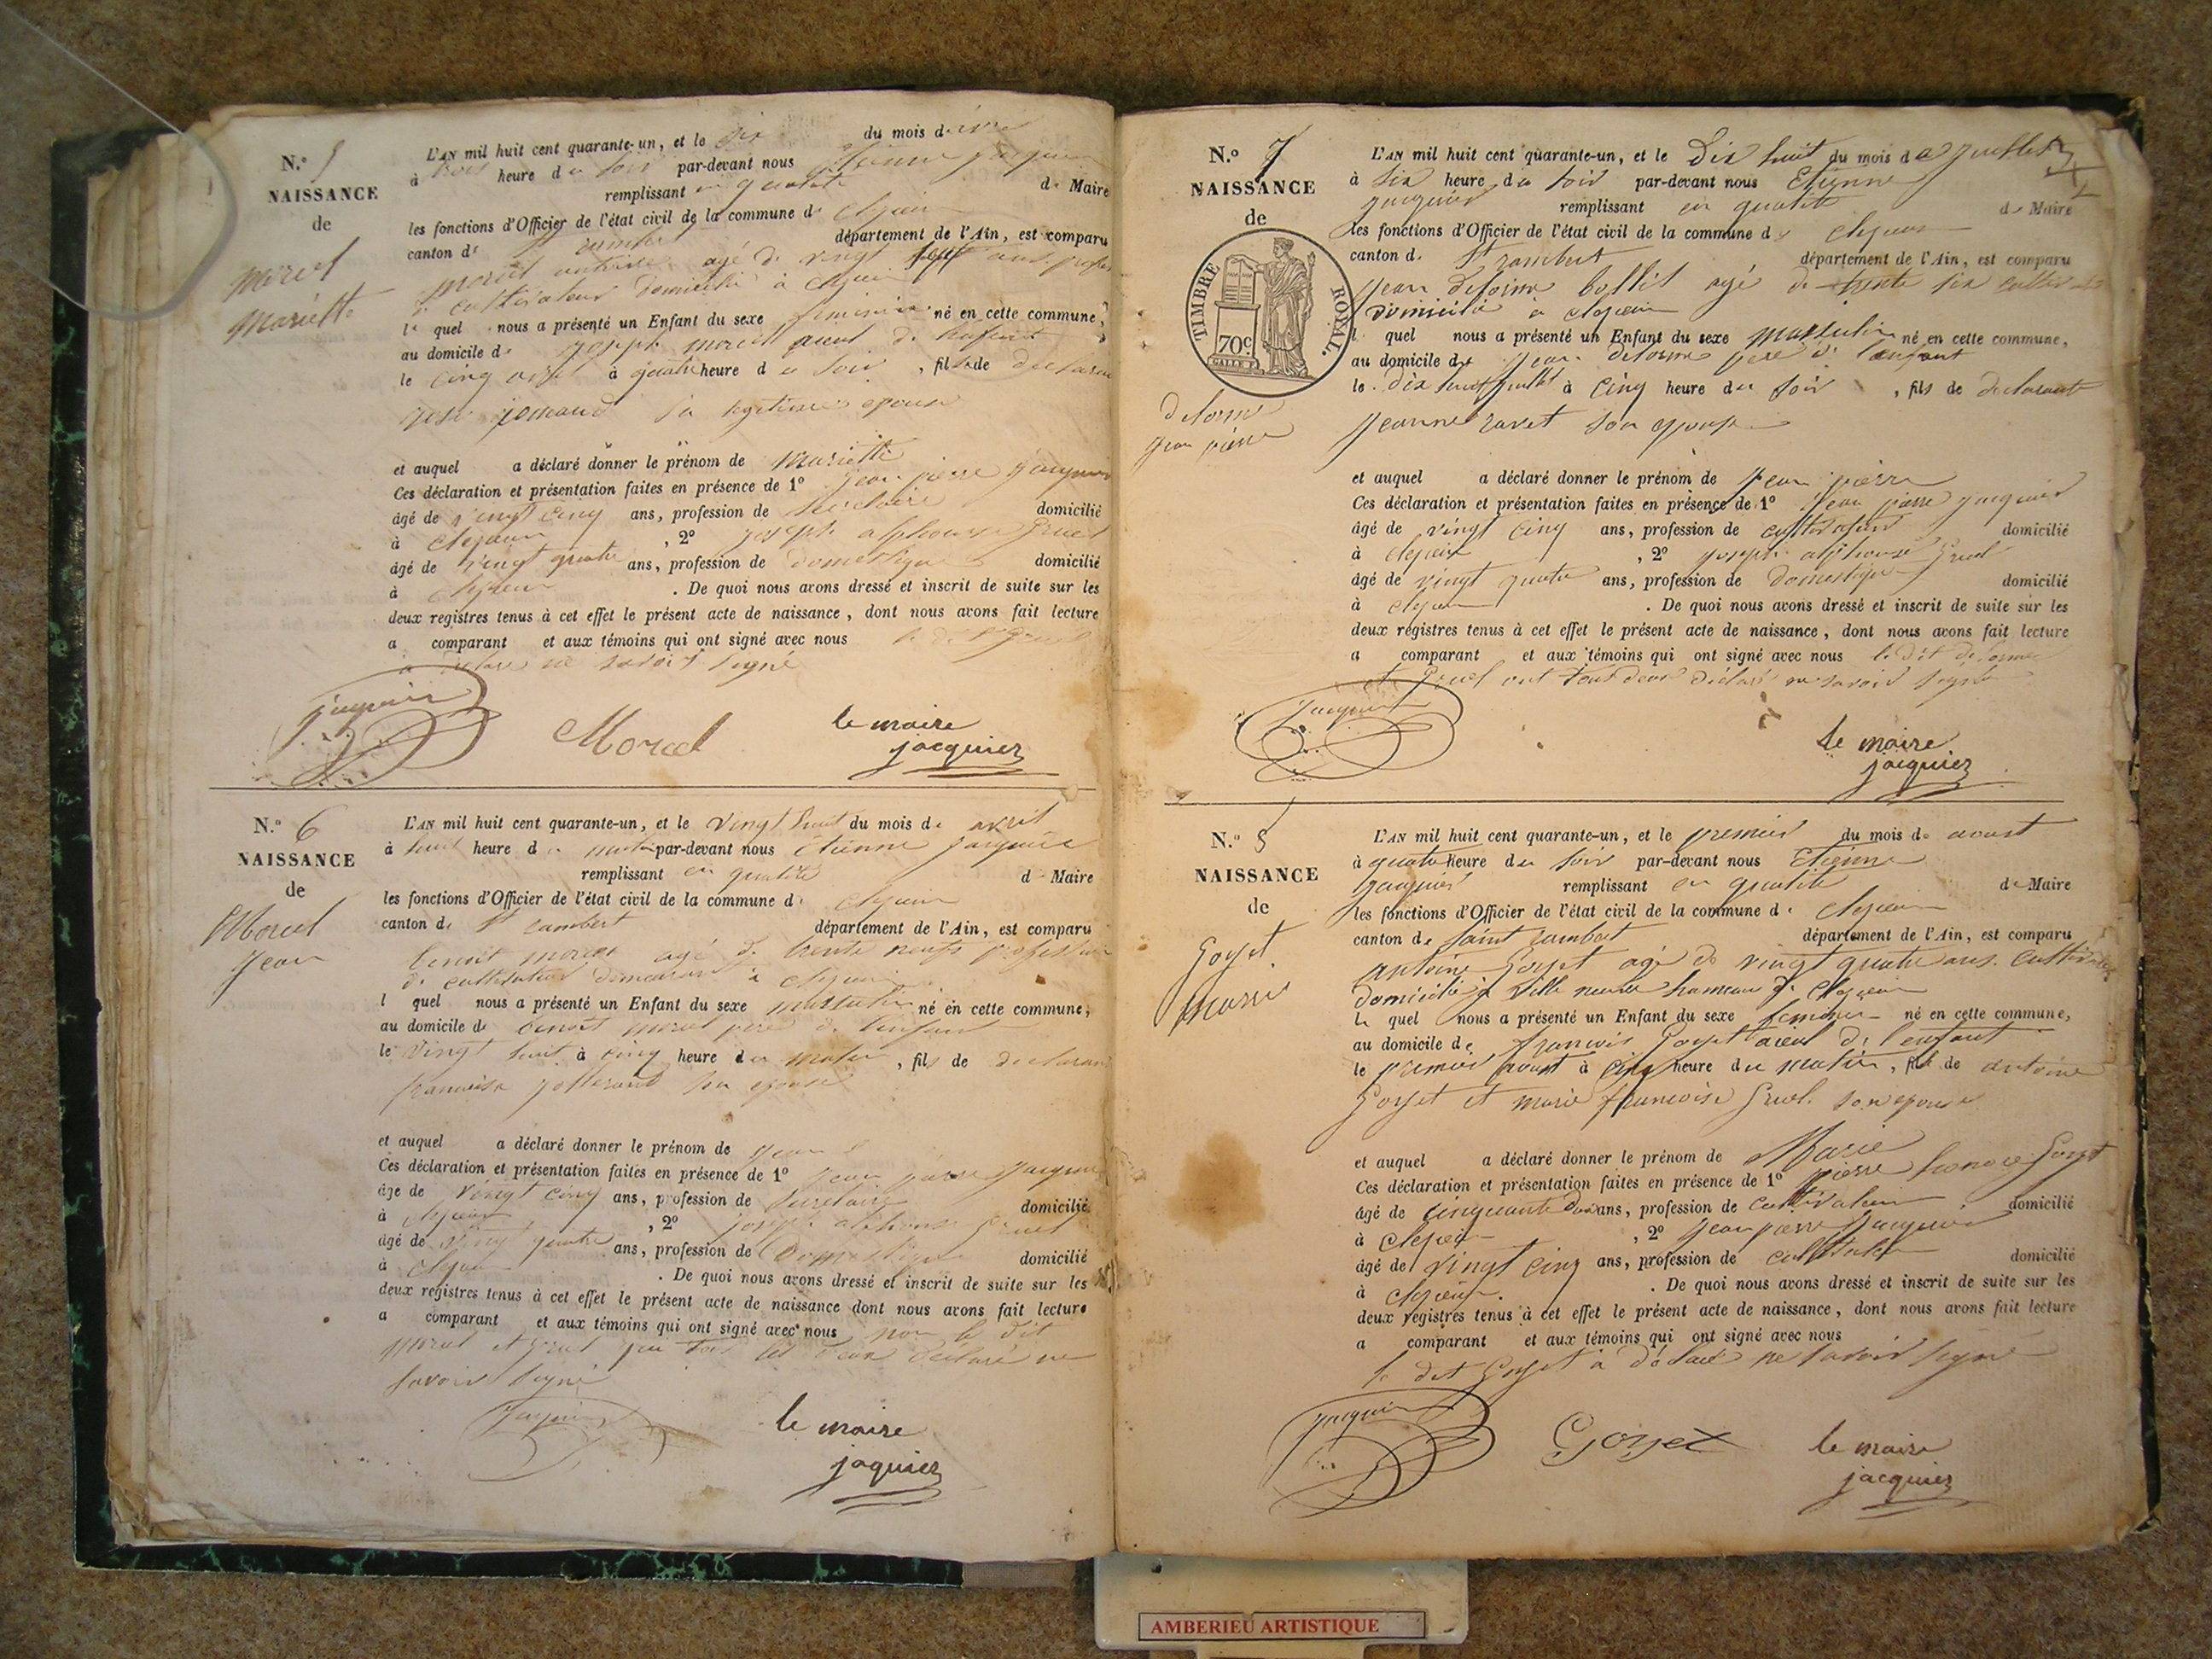 N.º 5
NAISSANCE
de
Morcel
Mariette
L'AN mil huit cent quarante-un, et le six du mois d'avril
à trois heure du soir par-devant nous Etienne jacquier
remplissant en qualité de Maire
les fonctions d'Officier de l'état civil de la commune de Cleyzieu
canton de St rambert département de l'Ain, est comparu
morcel antoine agé de vingt ans profes
de cultivateur domicilié à Cleyzieu
le quel nous a présenté un Enfant du sexe feminin né en cette commune,
au domicile de joseph morcel aieul de l'enfant
le cinq avril à quatre heure du soir, fille de declarant
sa legitime epouse
et auquel a déclaré donner le prénom de Mariette
Ces déclaration et présentation faites en présence de 1º jean pierre jacquier
âgé de vingt cinq ans, profession de secrétaire domicilié
à Cleyzieu, 2º joseph alphonse Gruel
âgé de vingt quatre ans, profession de domestique domicilié
à Cleyzieu. De quoi nous avons dressé et inscrit de suite sur les
deux registres tenus à cet effet le présent acte de naissance, dont nous avons fait lecture
a comparant et aux témoins qui ont signé avec nous le dit Gruel
a déclaré ne savoir signé
jacquier
Morcel
le maire
jacquier
N.º 6
NAISSANCE
de
Morcel
Jean
L'AN mil huit cent quarante-un, et le vingt huit du mois de avril
à huit heure du matin par-devant nous étienne jacquier
remplissant en qualité de Maire
les fonctions d'Officier de l'état civil de la commune de Cleyzieu
canton de St rambert département de l'Ain, est comparu
benoit morcel agé de trente neufs profession
de cultivateur demeurant à Cleyzieu
l quel nous a présenté un Enfant du sexe masculin né en cette commune,
au domicile de benoit morcel pere de l'enfant
le vingt huit à cinq heure du matin, fils de declarant
francoise son epouse
et auquel a déclaré donner le prénom de jean
Ces déclaration et présentation faites en présence de 1º jean pierre jacquier
âge de vingt cinq ans, profession de secretaire domicilié
à Cleyzieu, 2º joseph alphonse Gruel
âgé de vingt quatre ans, profession de Domestique domicilié
à Cleyzieu. De quoi nous avons dressé et inscrit de suite sur les
deux registres tenus à cet effet le présent acte de naissance dont nous avons fait lecture
a comparant et aux témoins qui ont signé avec nous non le dit
morcel et gruel tous les deux déclaré ne
savoir signé
jacquier
le maire
jaquier
N.º 7
NAISSANCE
de
TIMBRE ROYAL.
70c.
delorme
jean pierre
L'AN mil huit cent quarante-un, et le Dix huit du mois de juillet
à six heure du soir par-devant nous Etienne
jacquier remplissant en qualité de Maire
les fonctions d'Officier de l'état civil de la commune de Cleyzieu
canton de St rambert département de l'Ain, est comparu
jean delorme agé de trente six
domicilié à cleyzieu
l quel nous a présenté un Enfant du sexe masculin né en cette commune,
au domicile de jean delorme pere de l'enfant
le dix huit juillet à cinq heure du soir, fils de declarant
jeanne ravet son epouse
et auquel a déclaré donner le prénom de jean pierre
Ces déclaration et présentation faites en présence de 1º jean pierre jacquier
âgé de vingt cinq ans, profession de cultivateur domicilié
à cleyzieu, 2º joseph alphonse Gruel
âgé de vingt quatre ans, profession de domestique domicilié
à cleyzieu. De quoi nous avons dressé et inscrit de suite sur les
deux registres tenus à cet effet le présent acte de naissance, dont nous avons fait lecture
a comparant et aux témoins qui ont signé avec nous le dit delorme
et Gruel ont tout deux déclaré ne savoir signé
jacquier
le maire
jacquier
N.º 8
NAISSANCE
de
Goyet
Marie
L'AN mil huit cent quarante-un, et le premier du mois de aoust
à quatre heure du soir par-devant nous Etienne
jacquier remplissant en qualité de Maire
les fonctions d'Officier de l'état civil de la commune de Cleyzieu
canton de saint rambert département de l'Ain, est comparu
antoine Goyet agé de vingt quatre ans cultivateur
domicilié à Ville neuve hameau de Cleyzieu
le quel nous a présenté un Enfant du sexe feminin né en cette commune,
au domicile de francois Goyet aieul de l'enfant
le premier aoust à cinq heure du matin, fille de antoine
Goyet et marie francoise Gruel son epouse
et auquel a déclaré donner le prénom de Marie
Ces déclaration et présentation faites en présence de 1º pierre Goyet
âgé de cinquante deux ans, profession de cultivateur domicilié
à Cleyzieu, 2º jean pierre jacquier
âgé de vingt cinq ans, profession de cultivateur domicilié
à Cleyzieu. De quoi nous avons dressé et inscrit de suite sur les
deux registres tenus à cet effet le présent acte de naissance, dont nous avons fait lecture
a comparant et aux témoins qui ont signé avec nous
le dit Goyet a déclaré ne savoir signé
jacquier
Goyet
le maire
jacquier
AMBERIEU ARTISTIQUE